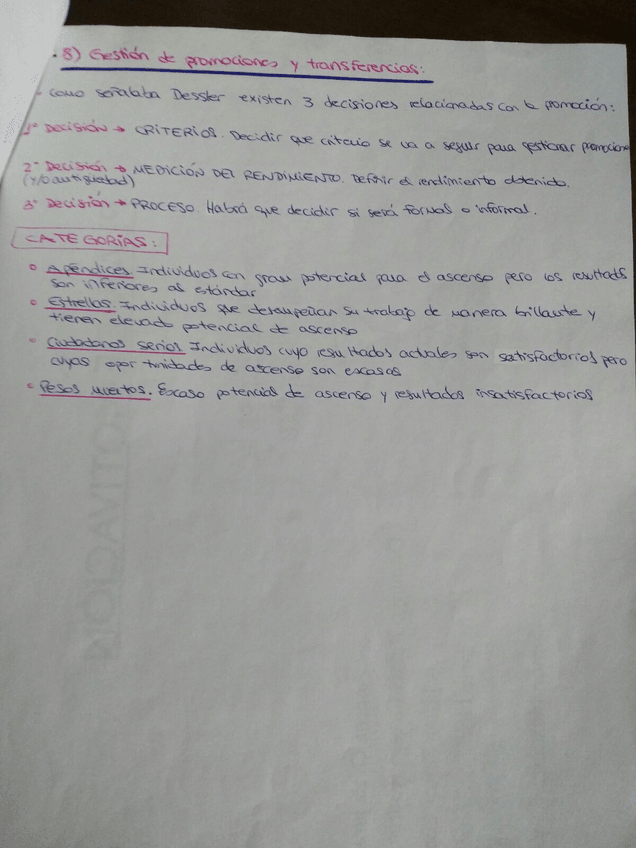 8) Gestión de promociones y transferencias:
- Como señalaba Dessler existen 3 decisiones relacionadas con la promoción:
1ª Decisión → CRITERIOS. Decidir que criterio se va a seguir para gestionar promociones
2ª Decisión → MEDICIÓN DEL RENDIMIENTO. Definir el rendimiento obtenido.
(Y/O antigüedad)
3ª Decisión → PROCESO. Habrá que decidir si será formal o informal.
CATEGORÍAS:
Apéndices. Individuos con gran potencial para el ascenso pero los resultados
son inferiores al estándar
Estrellas. Individuos que desempeñan su trabajo de manera brillante y
tienen elevado potencial de ascenso
Ciudadanos serios Individuos cuyo resultados actuales son satisfactorios pero
cuyas oportunidades de ascenso son escasas
Pesos muertos. Escaso potencial de ascenso y resultados insatisfactorios
MOTIVACIÓN